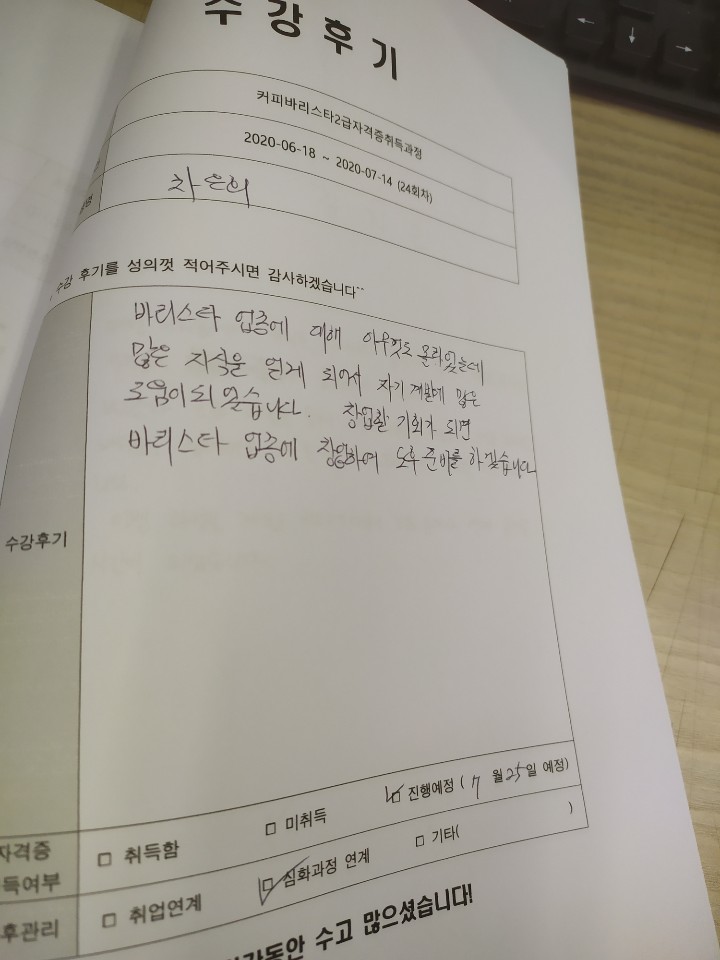 수강후기
커피바리스타2급자격증취득과정
2020-06-18 ~ 2020-07-14 (24회차)
차은희
수강 후기를 성의껏 적어주시면 감사하겠습니다^^
바리스타 업종에 대해 아무것도 몰라있는데
많은 지식을 얻게 되어서 자기계발에 많은
도움이 되었습니다. 창업할 기회가 되면
바리스타 업종에 창업하여 노후준비를 하겠습니다.
수강후기
자격증
득여부
□ 취득함 □ 미취득 □ 진행예정 ( 7 월 25일 예정)
후관리
□ 취업연계 □ 심화과정 연계 □ 기타( )
간동안 수고 많으셨습니다!